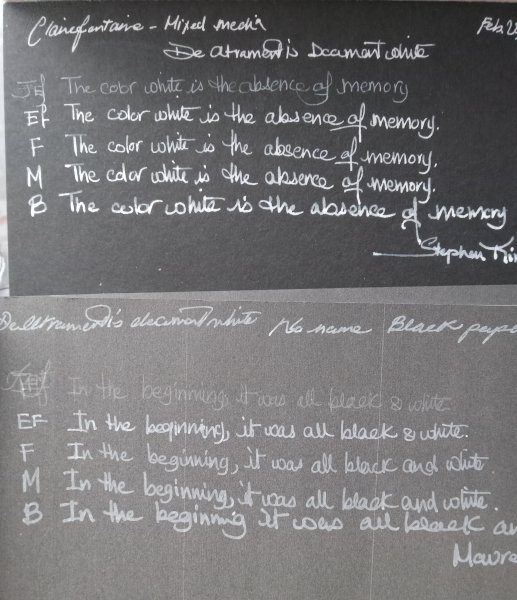 Clairefontaine - Mixed media Feb. 2
De atrament is Document white
The color white is the absence of memory
EF The color white is the absence of memory.
F The color white is the absence of memory.
M The color white is the absence of memory.
B The color white is the absence of memory
Stephen Kin
De atrament is document white No name Black pape
In the beginning, it was all black & white
EF In the beginning, it was all black & white.
F In the beginning, it was all black and white.
M In the beginning, it was all black and white.
B In the beginning it was all black an
Maure